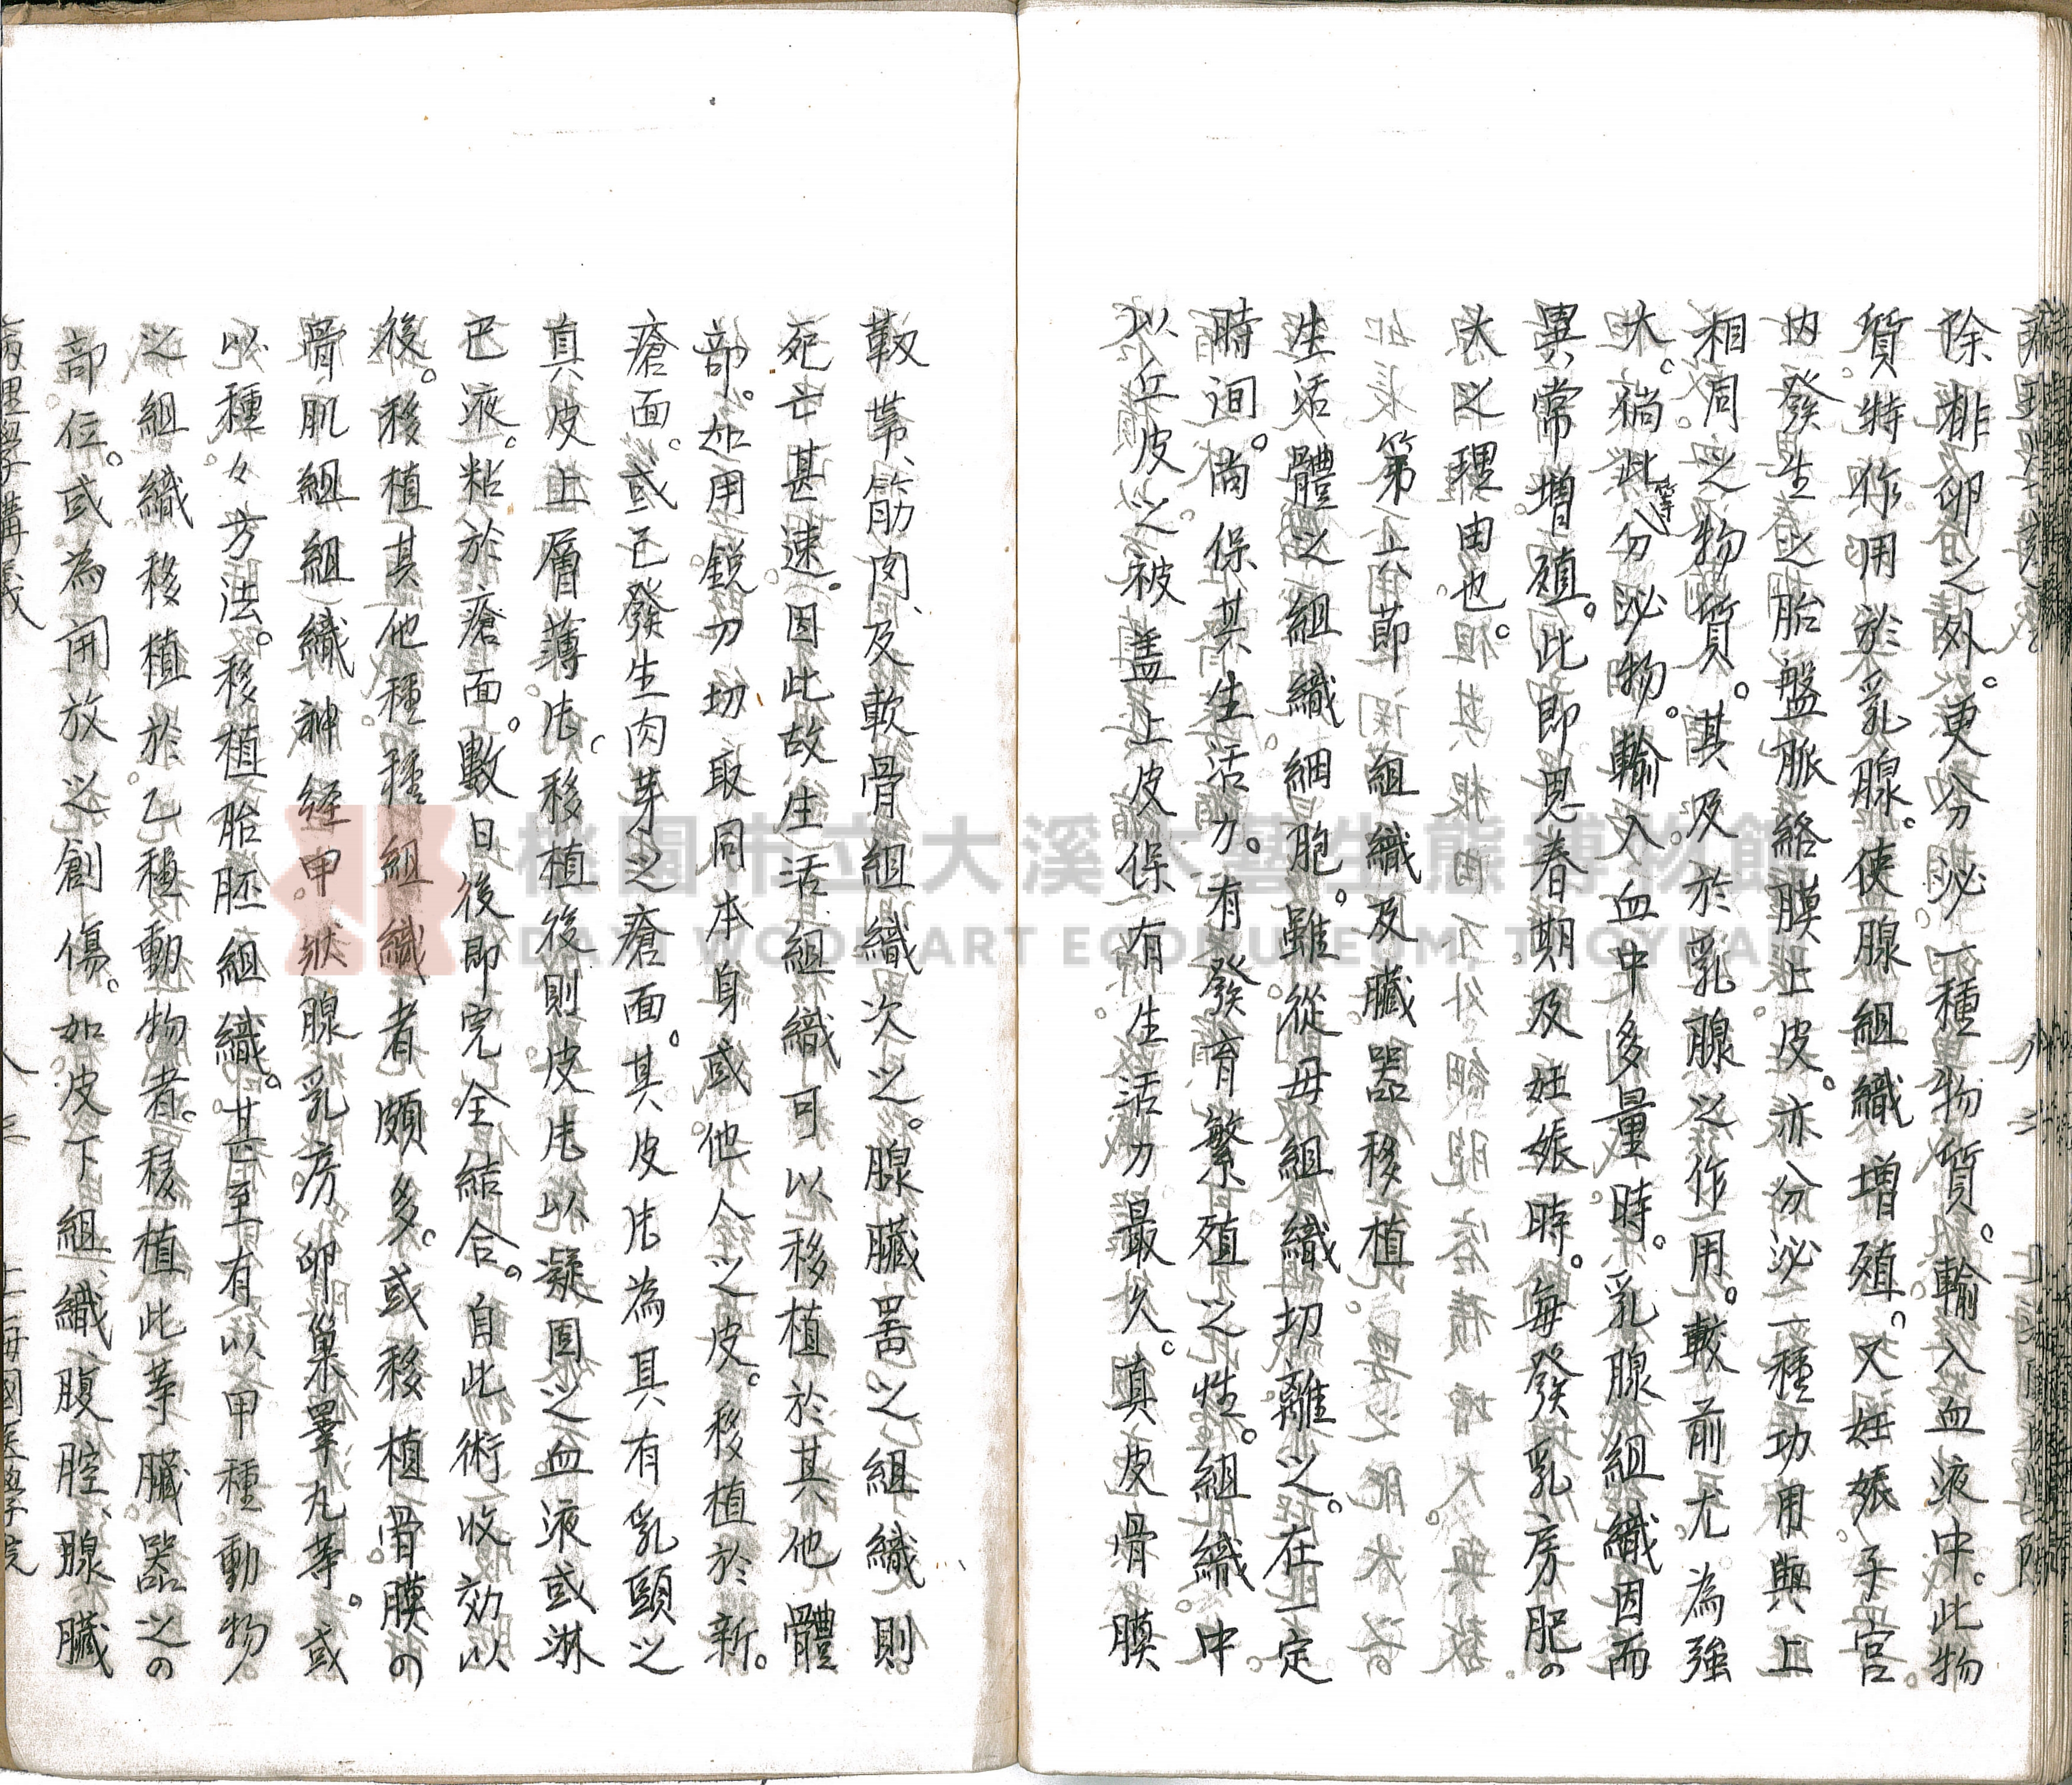 除排卵之外。更分泌一種物質。輸入血液中。此物
質特作用於乳腺。使腺組織增殖。又妊娠。子宮
內發生之胎盤脈絡膜上皮。亦分泌一種功用與上
相同之物質。其及於乳腺之作用。較前尤為強
大。倘此等分泌物。輸入血中多量時。乳腺組織因而
異常增殖。此即思春期及妊娠時。每發乳房肥
大之理由也。
第六節 組織及臟器移植
生活體之組織細胞。雖從母組織切離之。在一定
時间。尚保其生活力。有發育繁殖之性。組織中。
以丘皮之被盖上皮保有生活力最久。真皮骨膜
靱帯、筋肉、及軟骨組織次之。腺臟噐之組織則
死亡甚速。因此故生活組織可以移植於其他體
部。如用鋭刀切取同本身或他人之皮。移植於新。
瘡面。或已發生肉芽之瘡面。其皮片為具有乳頭之
真皮上層薄片。移植後則皮片以凝固之血液或淋
巴液。粘於瘡面。數日後即完全結合。自此術收効以
後。移植其他種種組織者頗多。或移植骨膜
骨肌組組織神経甲狀腺乳房卵巢睪丸等。或
以種々方法。移植胎胚組織。甚至有以甲種動物
之組織移植於乙種動物者。移植此等臟器之
部位。或為開放之創傷。如皮下組織、腹腔、腺臟
病理學講義
桃園市立大溪木藝生態博物館
DAXI WOOD ART ECOMUSEUM, TAOYUAN